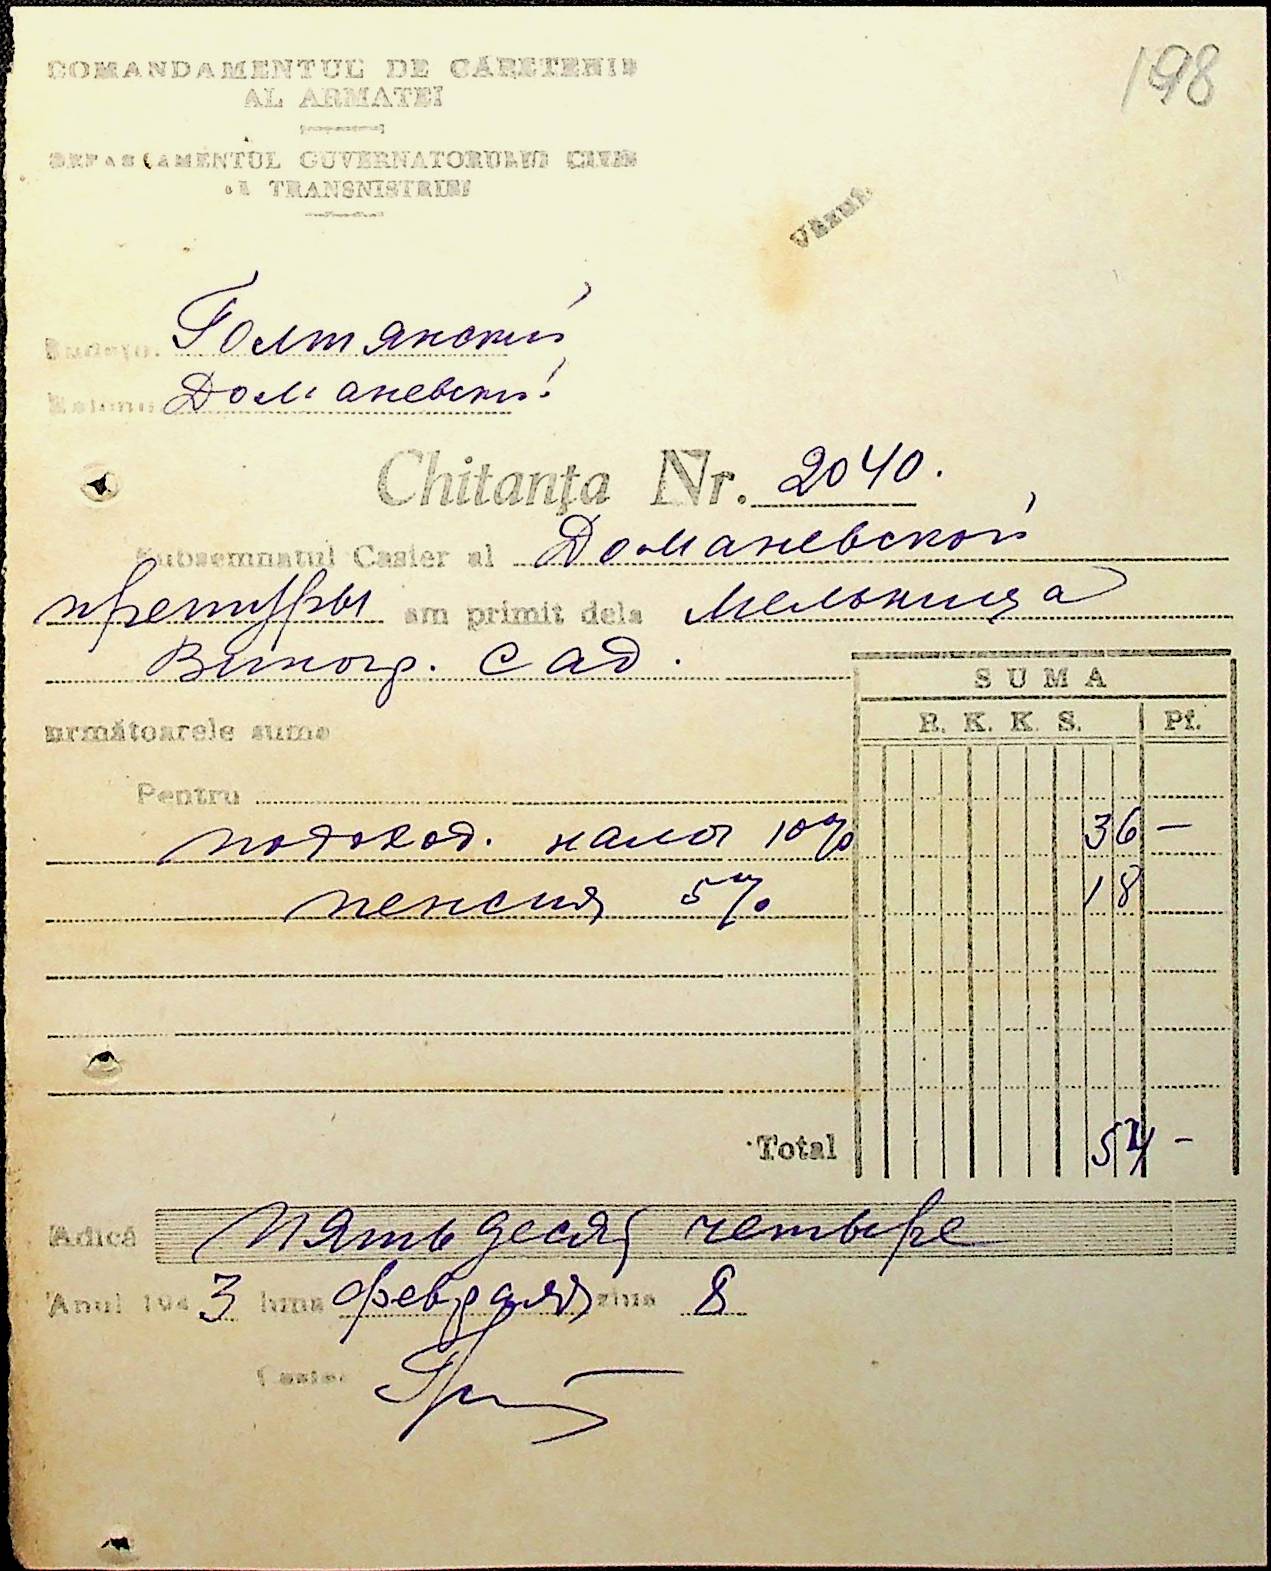 198
COMANDAMENTUL DE CĂPETENIE
AL ARMATEI
DEPARTAMENTUL GUVERNATORULUI CIVIL
AL TRANSNISTRIEI
Văzut.
Județul Голтянский
Raionul Доманевский
Chitanța Nr. 2040.
Subsemnatul Casier al Доманевской
претуры am primit dela Мельница
Виногр. Сад.
SUMA
următoarele sume
R. K. K. S. Pf.
Pentru
подоход. налог 10% 36 —
пенсия 5% 18
Total 54 —
Adică Пятьдесят четыре
Anul 1943 luna февраля ziua 8
Casier